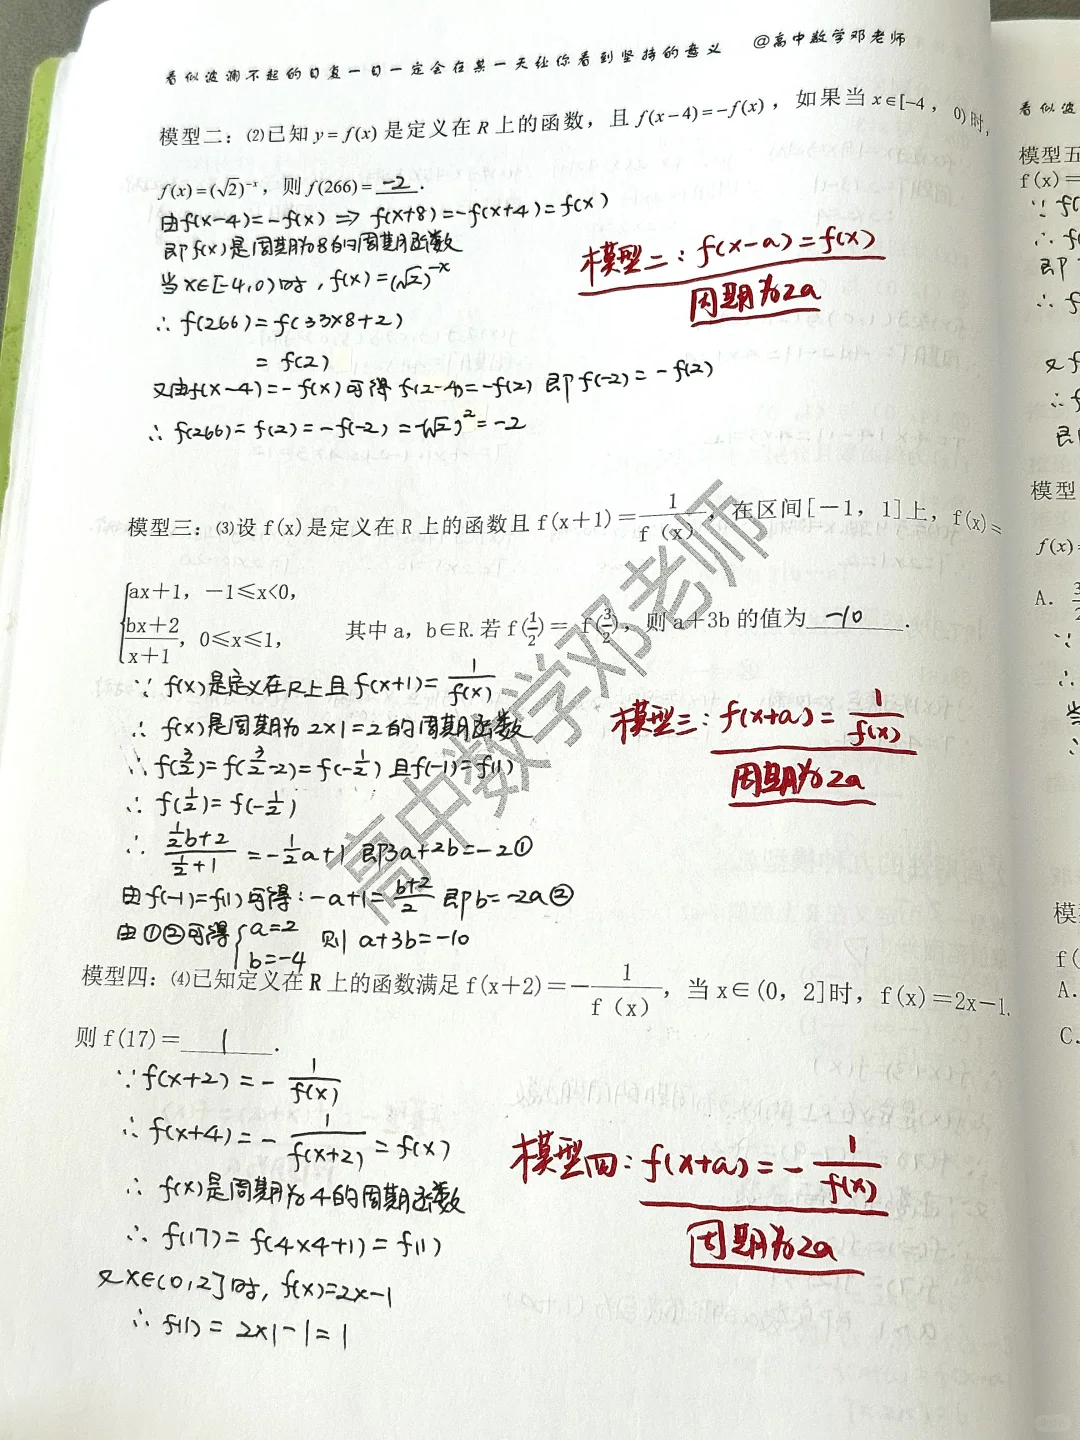 看似波澜不起的日复一日一定会在某一天让你看到坚持的意义 @高中数学邓老师
模型二：⑵已知 y=f(x) 是定义在 R 上的函数，且 f(x-4)=-f(x)，如果当 x∈[-4，0) 时，
f(x)=(√2)^{-x}，则 f(266)= -2 .
由f(x-4)=-f(x) ⇒ f(x+8)=-f(x+4)=f(x)
即f(x)是周期为8的周期函数
当x∈[-4,0)时，f(x)=(√2)^{-x}
∴ f(266)=f(33×8+2)
=f(2)
又由f(x-4)=-f(x)可得 f(2-4)=-f(2) 即f(-2)=-f(2)
∴ f(266)=f(2)=-f(-2)=-(√2)²=-2
模型二：f(x-a)=f(x)
周期为2a
模型三：⑶设 f(x)是定义在 R 上的函数且 f(x+1)=1/f（x），在区间[-1，1]上，f(x)=
{ax+1，-1≤x<0，
(bx+2)/(x+1)，0≤x≤1， 其中 a，b∈R.若 f(1/2)=f(3/2)，则 a+3b 的值为 -10 .
∵ f(x)是定义在R上且f(x+1)=1/f(x)
∴ f(x)是周期为2×1=2的周期函数
∴ f(3/2)=f(3/2-2)=f(-1/2) 且f(-1)=f(1)
∴ f(1/2)=f(-1/2)
∴ (1/2b+2)/(1/2+1)=-1/2a+1 即3a+2b=-2①
由f(-1)=f(1)可得：-a+1=(b+2)/2 即b=-2a②
由①②可得{a=2 则 a+3b=-10
b=-4
模型三：f(x+a)=1/f(x)
周期为2a
模型四：⑷已知定义在 R 上的函数满足 f(x+2)=-1/f（x），当 x∈(0，2]时，f(x)=2x-1.
则 f(17)= 1 .
∵f(x+2)=-1/f(x)
∴ f(x+4)=-1/f(x+2)=f(x)
∴ f(x)是周期为4的周期函数
∴ f(17)=f(4×4+1)=f(1)
又x∈(0,2]时，f(x)=2x-1
∴ f(1)=2×1-1=1
模型四：f(x+a)=-1/f(x)
周期为2a
高中数学邓老师
看似波
模型五
f(x)=
∵ f(
∴ f(
即
∴ f(
又f
∴ f
即
模型
f(x)=
A.
∵
∴
当
∴
模
f(
A.
C.